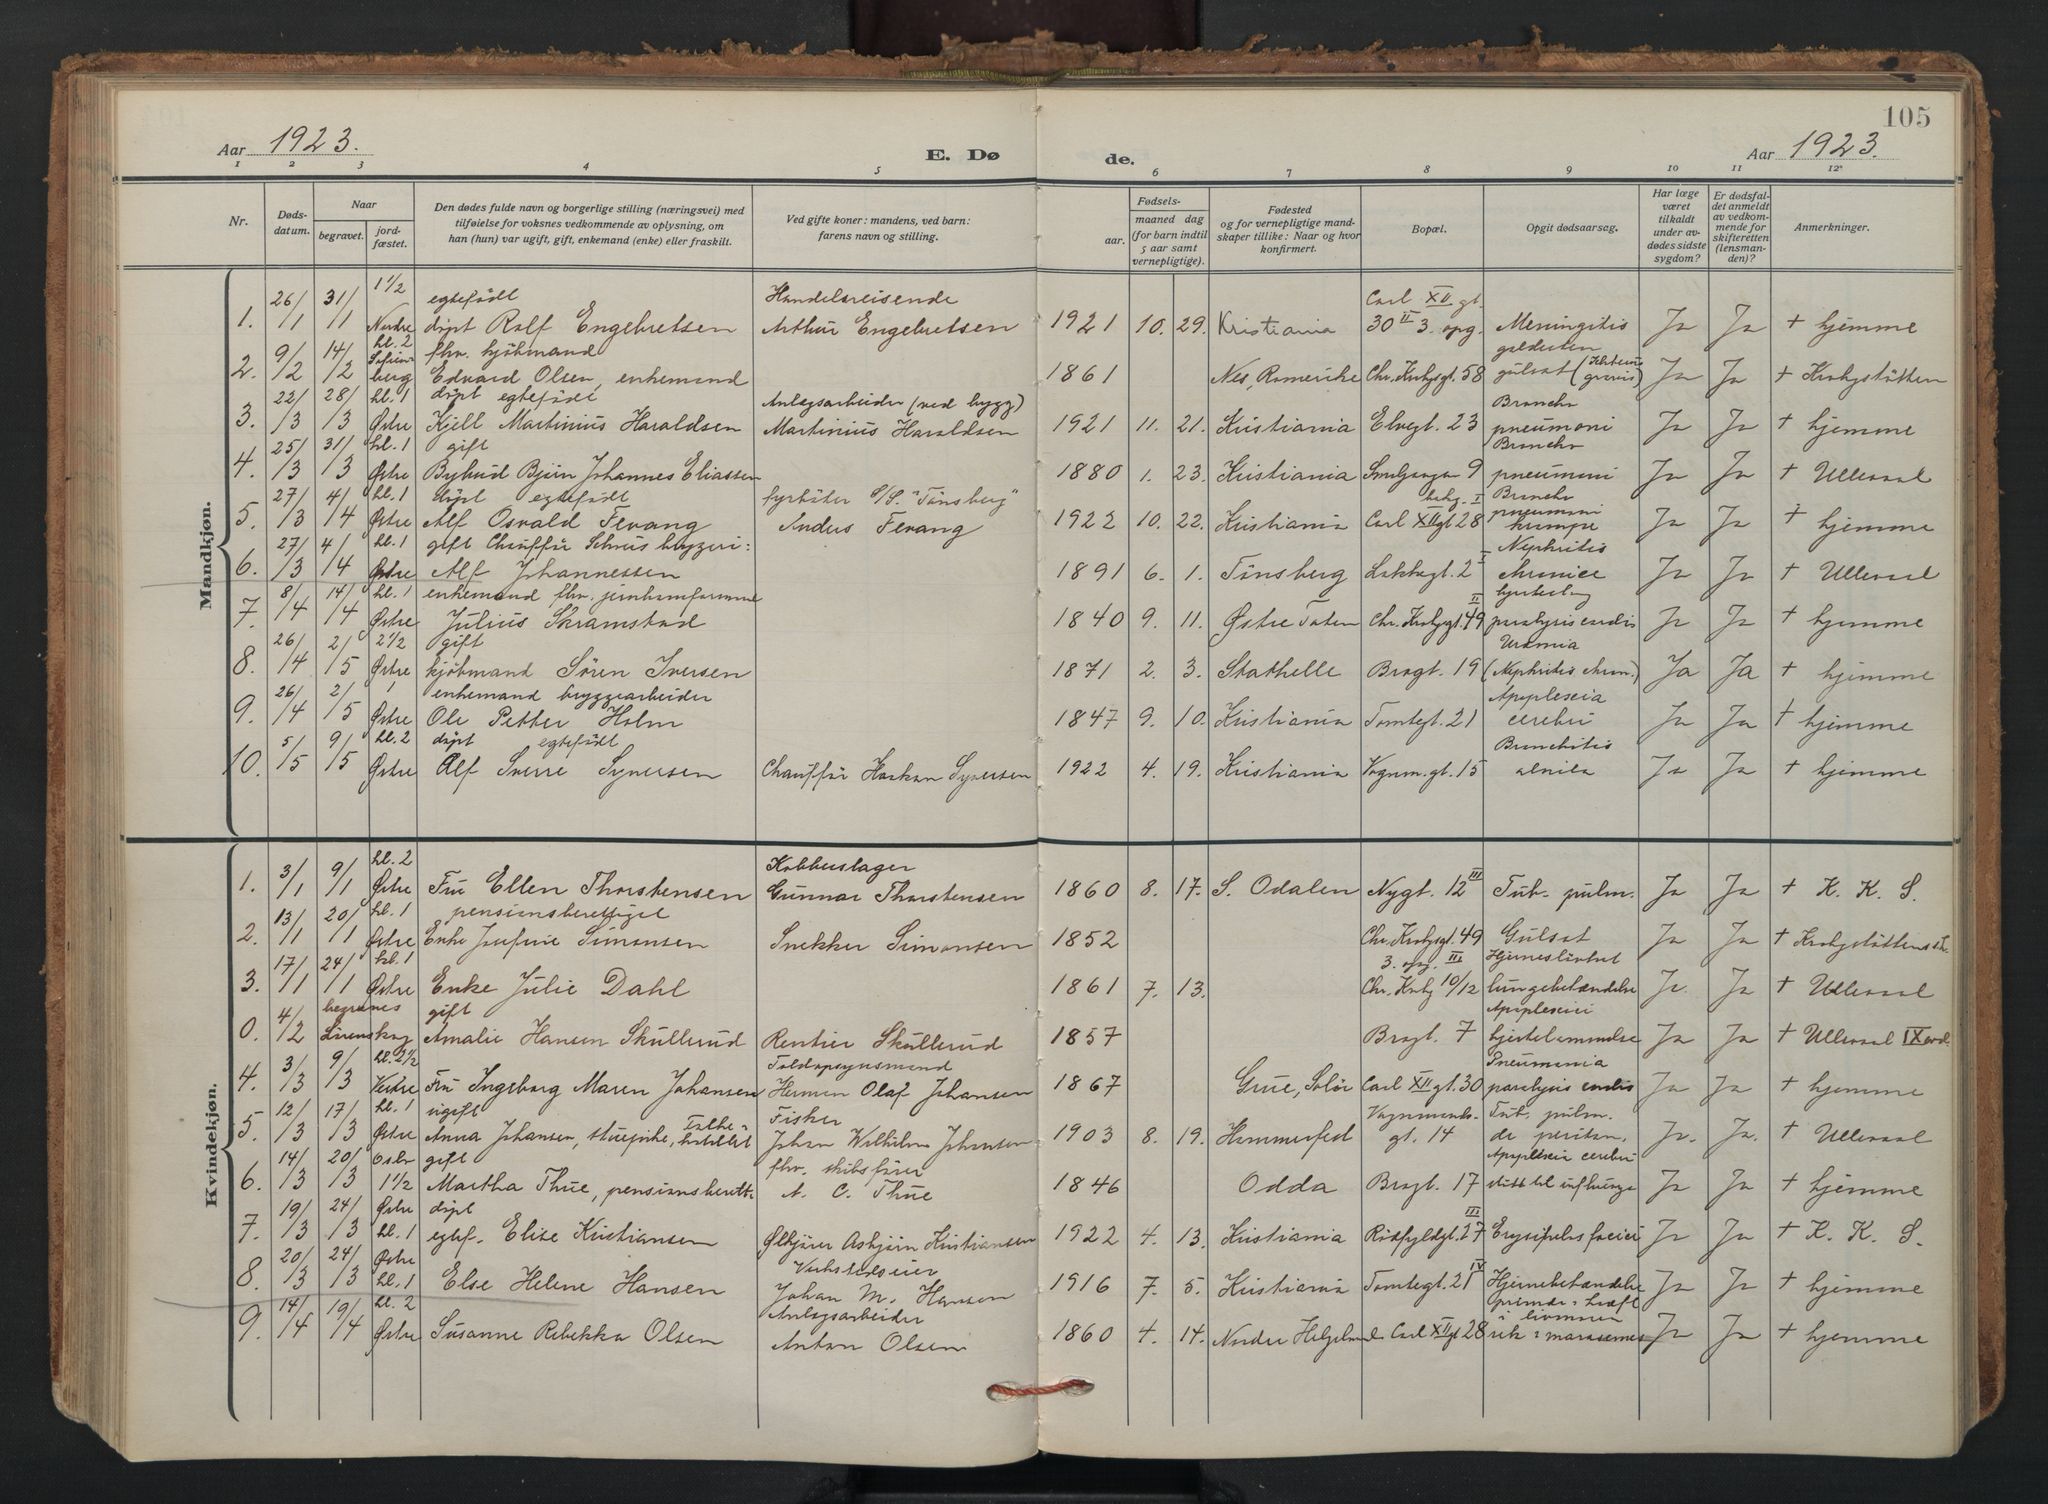 105
Aar 1923.
E. Dø
de.
Aar 1923.
1 2 3 4 5 6 7 8 9 10 11 12
Nr.
Døds-
datum.
Naar
begravet.
jord-
fæstet.
Den dødes fulde navn og borgerlige stilling (næringsvei) med
tilføielse for voksnes vedkommende av oplysning, om
han (hun) var ugift, gift, enkemand (enke) eller fraskilt.
Ved gifte koner: mandens, ved barn:
farens navn og stilling.
Fødsels-
aar.
maaned dag
(for barn indtil
5 aar samt
vernepligtige).
Fødested
og for vernepligtige mand-
skaper tillike: Naar og hvor
konfirmert.
Bopæl.
Opgit dødsaarsag.
Har læge
været
tilkaldt
under av-
dødes sidste
sygdom?
Er dødsfal-
det anmeldt
av vedkom-
mende for
skifteretten
(lensman-
den)?
Anmerkninger.
Mandkjøn.
26/ 31/ 1 1/2 egtefödt Handelsreisende Carl XII gt.
1. /1 /1 Nordre döpt Rolf Engebretsen Arthur Engebretsen 1921 10. 29. Kristiania 30 II 3. opg. Meningitis Ja Ja + hjemme
9/ 14/ kl. 2 fhv. kjöbmand
2. /2 /2 berg Edvard Olsen, enkemand 1861 Nes, Romerike Chr. Krohgsgt. 58 gulsot Ja Ja + Krohgstötten
22/ 28/ kl. 1 döpt egtefödt Anlægsarbeider (ved bygg) Broncho
3. /3 /3 Østre Kjell Martinius Haraldsen Martinius Haraldsen 1921 11. 21. Kristiania Elvegt. 23 pneumoni Ja Ja + hjemme
25/ 31/ kl. 1 gift Broncho
4. /3 /3 Østre Bybud Björn Johannes Eliassen 1880 1. 23. Kristiania 9 pneumoni Ja Ja + Ullevaal
27/ 4/ kl. 1 döpt egtefödt fyrböter S/S. "Tönsberg" Broncho
5. /3 /4 Østre Alf Osvald Fevang Anders Fevang 1922 10. 22. Kristiania Carl XII gt 28 pneumoni krampe Ja Ja + hjemme
27/ 4/ kl. 1 gift Chaufför Schous bryggeri: Nephritis
6. /3 /4 Østre Alf Johannessen 1891 6. 1. Tönsberg Lakkegt. 2 chronica Ja Ja + Ullevaal
8/ 14/ kl. 1 enkemand fhv.
7. /4 /4 Østre Julius Skramstad 1840 9. 11. Østre Toten Chr. Krohgsgt. 49 II paralysis cordis Ja Ja + hjemme
26/ 2/ 2 1/2 gift Urämia
8. /4 /5 Østre kjöbmand Sören Iversen 1871 2. 3. Stathelle Brogt. 19 (Nephritis chron.) Ja Ja + hjemme
26/ 2/ 1 enkemand bryggearbeider Apoplexia
9. /4 /5 Østre Ole Petter Holm 1847 9. 10. Kristiania Tomtegt. 21 cerebri Ja Ja + hjemme
5/ 9/ kl. 2 döpt egtefödt Bronchitis
10. /5 /5 Østre Alf Sverre Syversen Chaufför Haakon Syversen 1922 4. 19. Kristiania Vognm. gt. 15 Ja Ja + hjemme
Kvindekjøn.
3/ 9/ kl. 2 Kobberslager
1. /1 /1 Østre Fru Ellen Thorstensen Gunnar Thorstensen 1860 8. 17. S. Odalen Nygt. 12 III Tub. pulm. Ja Ja + K. K. S.
13/ 20/ kl. 1 pensionsberettiget
2. /1 /1 Østre Enke Josefine Simonsen Snekker Simonsen 1852 Chr. Krohgsgt. 49 Gulsot Ja Ja + Krohgstöttens
17/ 24/ kl. 1 3. opg. III
3. /1 /1 Østre Enke Julie Dahl 1861 7. 13. Chr. Krohg 10/12 lungebetændelse Ja. Ja + Ullevaal
4/ begraves gift
0. /2 Lörenskog Amalie Hansen Skullerud Rentier Skullerud 1857 Brogt. 7 hjertelammelse Ja Ja + Ullevaal IX
3/ 9/ kl. 2 1/2 Toldopsynsmand Pneumonia
4. /3 /3 Vestre Fru Ingeborg Maren Johansen Herman Olaf Johansen 1867 Grue, Solör Carl XII gt. 30 paralysis cordis Ja Ja + hjemme
12/ 17/ kl. 1 ugift Fisker Vognmands- Tub. pulm.
5. /3 /3 Østre Anna Johansen, stuepike, Johan Wilhelm Johansen 1903 8. 19. Hammerfest gt. 14 Ja. Ja. + Ullevaal
14/ 20/ Oslo gift fhv. skibsförer Apoplexia cerebri
6. /3 /3 1 1/2 Martha Thue, pensionsberett. A. C. Thue 1846 Odda Brogt. 17 Ja Ja + hjemme
19/ 24/ Østre döpt
7. /3 /3 kl. 1 egtef. Elise Kristiansen Ølkjörer Asbjörn Kristiansen 1922 4. 13. Kristiania Rödfyldgt. 27 III Erysipelas faciei Ja Ja + K. K. S.
20/ 24/ Østre Verkstedseier
8. /3 /3 kl. 1 Else Helene Hansen Johan M. Hansen 1916 7. 5. Kristiania Tomtegt. 21 IV Hjernebetændelse Ja Ja + hjemme
14/ 19/ kl. 2 Anlægsarbeider
9. /4 /4 Østre Susanne Rebekka Olsen Anton Olsen 1860 4. 14. Nordre Helgeland Carl XII gt 28 Ja Ja + hjemme